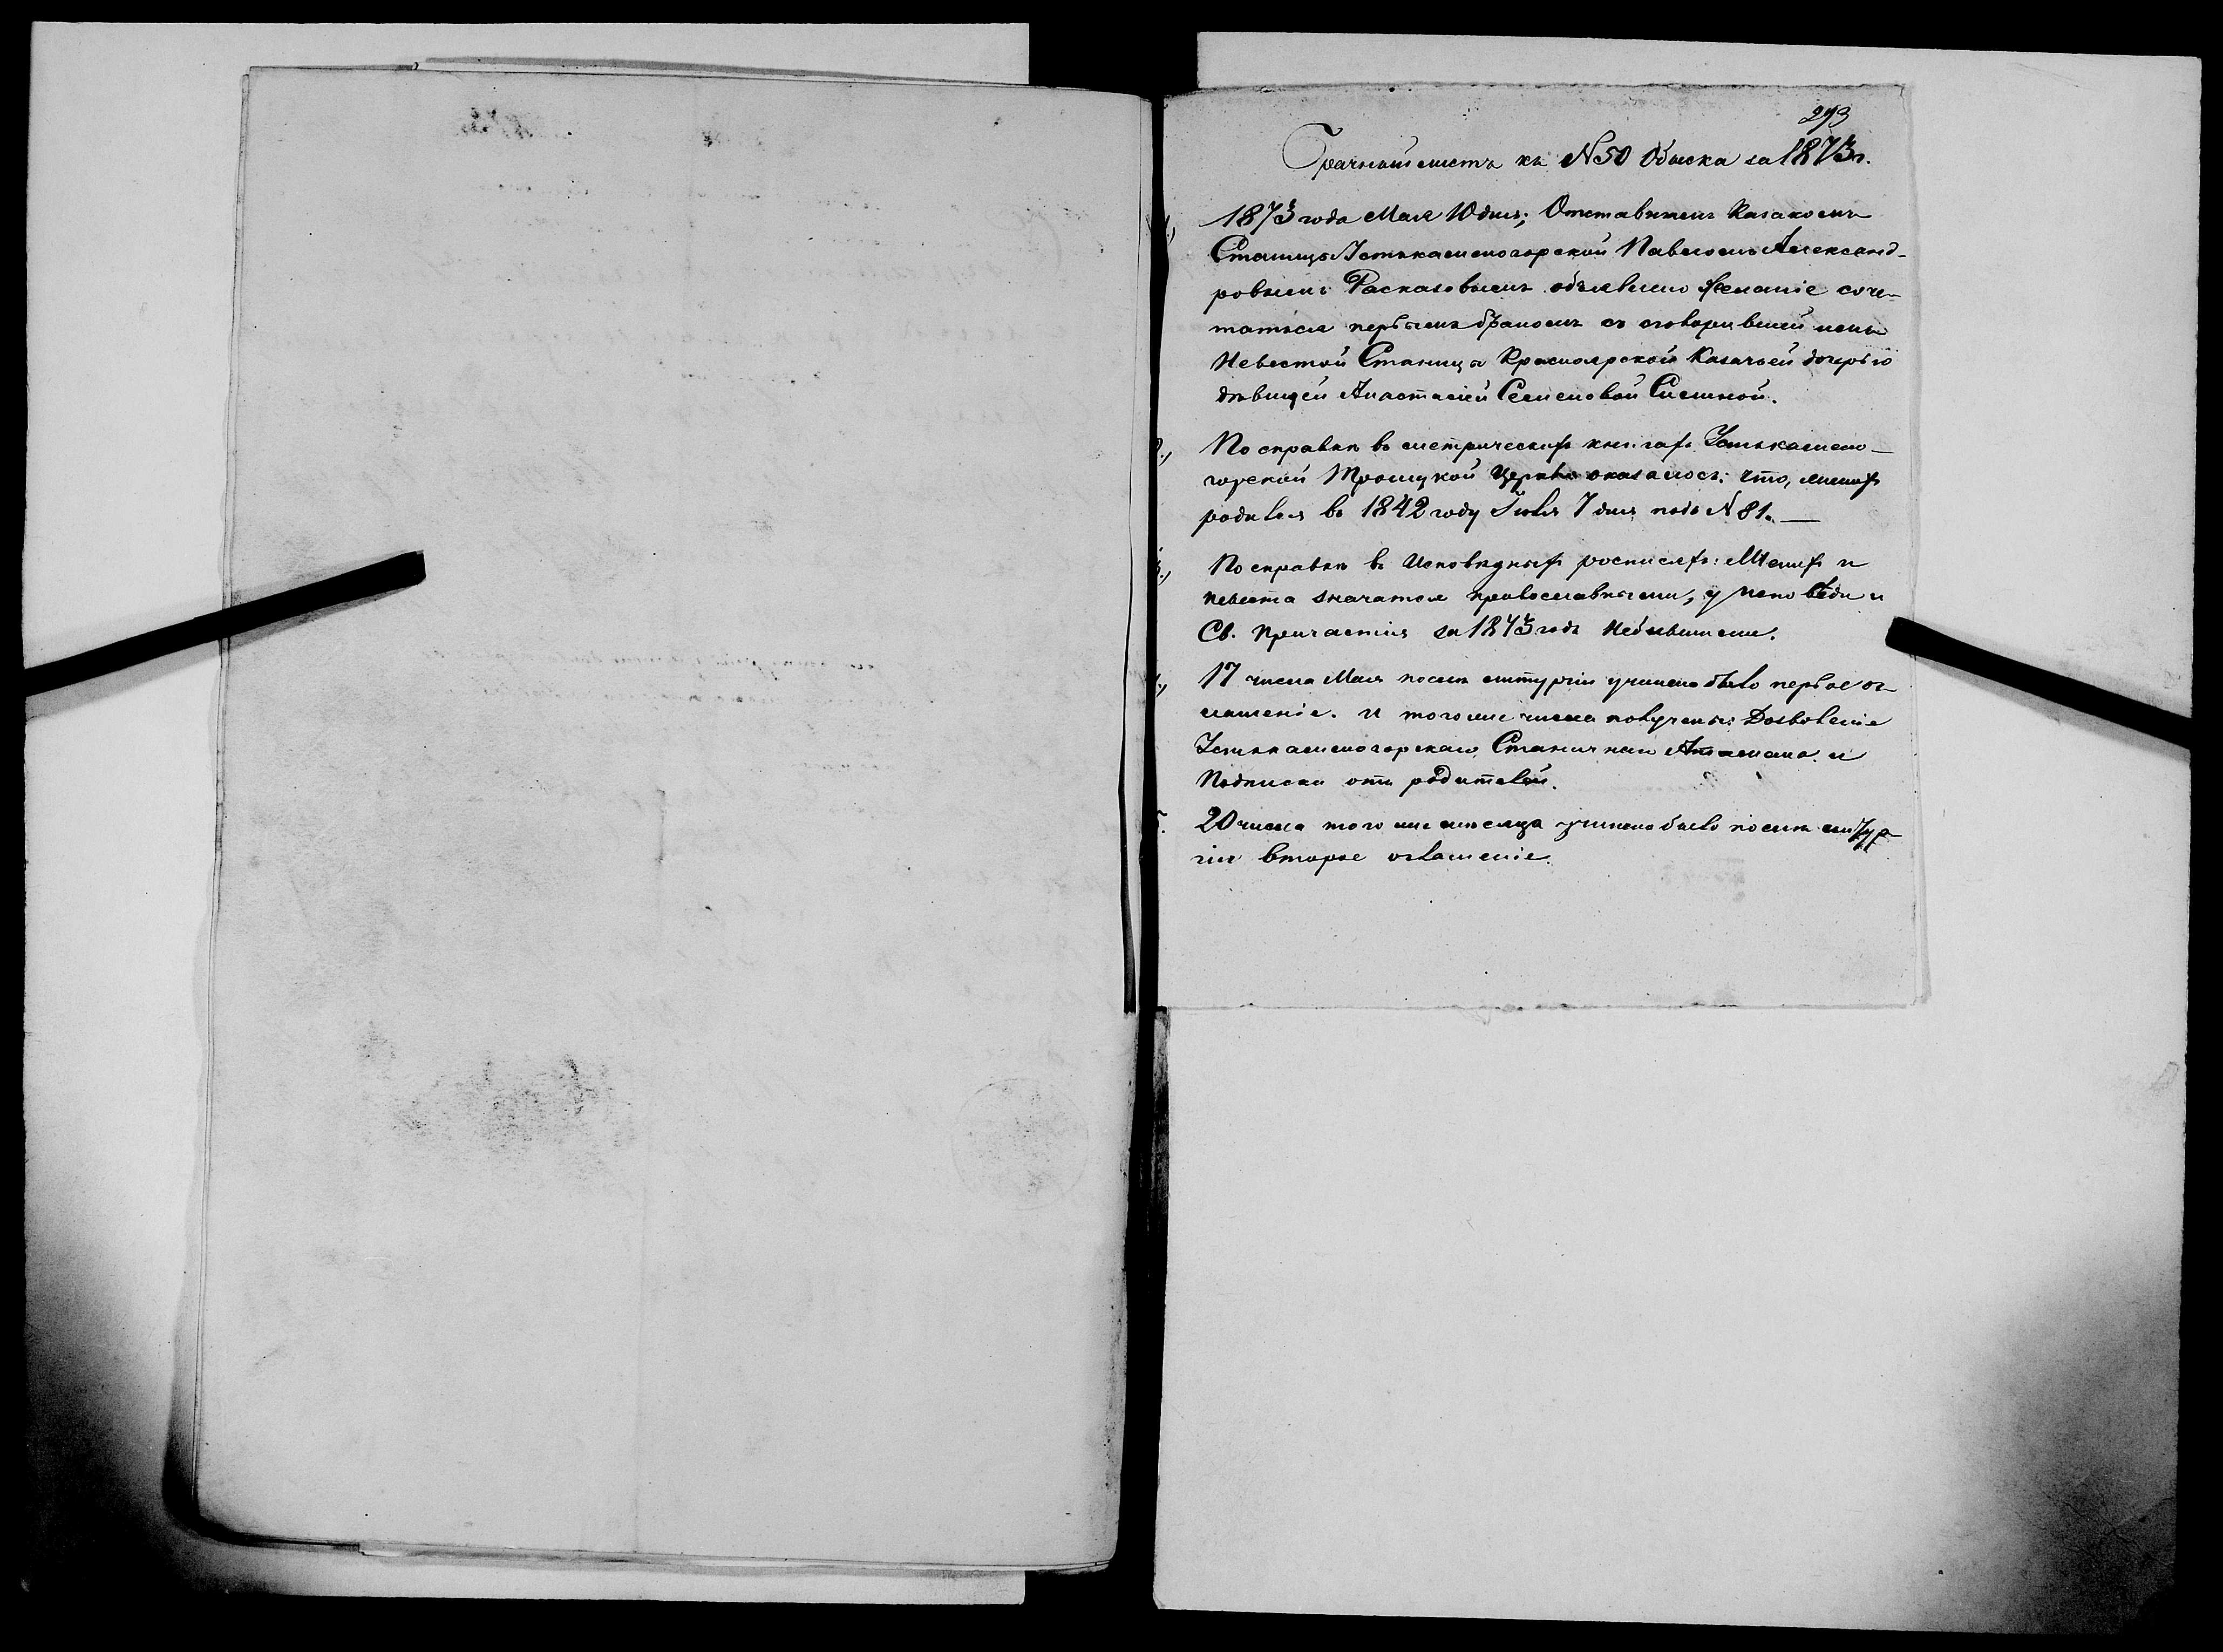 293
Брачный листъ къ N 50 Обыска за 1873 г.
1.) 1873 года Мая 10 дня; Отставнымъ Казакомъ
Станицы Устькаменогорской Павломъ Александ-
ровымъ Расказовымъ объявлено желаніе соче-
таться первымъ бракомъ съ сговорившей имъ
Невестой Станицы Красноярской Казачьей дочерью
дѣвицей Анастасіей Семеновой
2.) По справкѣ въ метрическихъ книгахъ Устькамено-
горской Троицкой Церкви оказалось: что, женихъ
родился въ 1842 году Іюля 7 дня подъ N 81.—
3.) По справкѣ въ Исповѣдныхъ росписяхъ: Женихъ и
невеста значатся православными, у исповѣди и
Св. Причастія за 1873 годъ Небывшими.
4.) 17 числа Мая послѣ литургіи учинено было первое ог-
лашеніе. и того же числа получены: Дозволеніе
Устькаменогорскаго Станичнаго Атамана. и
Подписки отъ родителей.
5. 20 числа того же мѣсяца учинено было послѣ литур-
гіи второе оглашеніе.